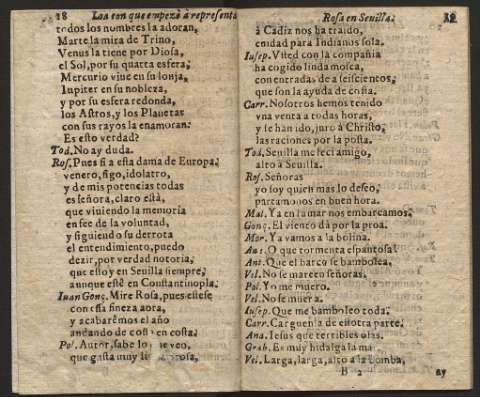 18 Loa con que empezò à representa
todos los nombres la adoran,
Marte la mira de Trino,
Venus la tiene por Diosa,
el Sol, por su quarta esfera;
Mercurio viue en su lonja,
Iupiter en su nobleza,
y por su esfera redonda,
los Astros, y los Planetas
con sus rayos la enamoran:
Es esto verdad?
Tod. No ay duda.
Ros. Pues si a esta dama de Europa
venero, sigo, idolatro,
y de mis potencias todas
es señora, claro està,
que viuiendo la memoria
en fee de la voluntad,
y siguiendo su derrota
el entendimiento, puedo
dezir, por verdad notoria,
que estoy en Seuilla siempre,
aunque estè en Constantinopla.
Iuan Gonç. Mire Rosa, pues esse
con essa fineza aora,
y acabarèmos el año
andando de cost en costa.
Pol. Autor, sabe lo que veo,
que gasta muy
Rosa en Seuilla. 19
à Cadiz nos ha traido,
cuidad para Indianos sola.
Iusep. Vsted con la compañia
ha cogido linda mosca,
con entradas de a seiscientos,
que son la ayuda de costa.
Carr. Nosotros hemos tenido
vna venta a todas horas,
y se han ido, juro à Christo,
las raciones por la posta.
Tod. Seuilla me feci amigo,
alto à Seuilla.
Ros. Señoras
yo soy quien mas lo deseo,
partamonos en buen hora.
Mal. Ya en la mar nos embarcamos.
Gonç. El viento dà por la proa.
Mar. Ya vamos a la bolina.
Aut. O que tormenta espantosa!
Ant. Que el barco se bambolea,
Vel. No se mareen señoras,
Pol. Yo me muero.
Vel. No se muera.
Iusep. Que me bamboleo toda.
Carr. Carguen la de estotra parte.
Ana. Iesus que terribles olas.
Grab. Es muy hidalga la ma
Vel. Larga, larga, alto a la bomba,
B 2 ay